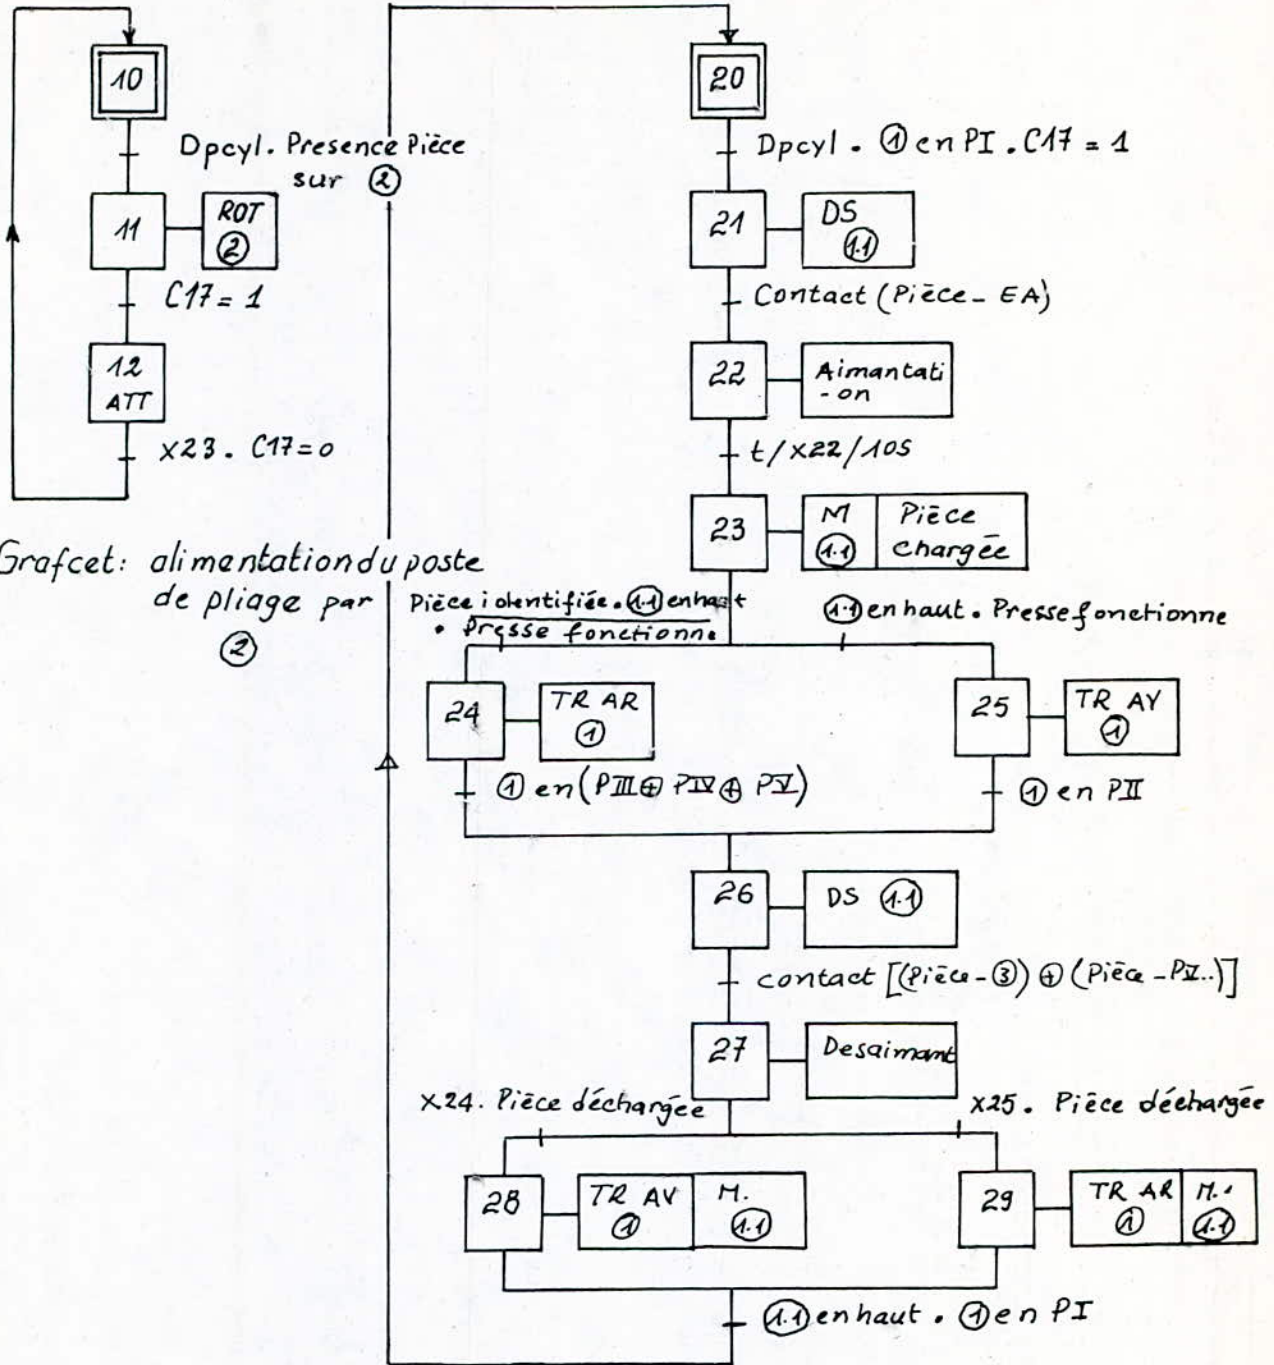 10
Dpcyl. Presence Pièce
sur ②
11
ROT
②
C17 = 1
12
ATT
X23. C17=0
Grafcet: alimentation du poste
de pliage par
②
20
Dpcyl. ① en PI. C17 = 1
21
DS
1.1
Contact (Pièce - EA)
22
Aimantati
-on
t/X22/10S
23
M
1.1
Pièce
chargée
Pièce identifiée. 1.1 en haut
. Presse fonctionne
1.1 en haut. Presse fonctionne
24
TR AR
①
25
TR AV
①
① en (PIII ⊕ PIV ⊕ PV)
① en PII
26
DS 1.1
contact [(Pièce-③) ⊕ (Pièce - PV..)]
27
Desaimant
X24. Pièce déchargée
X25. Pièce déchargée
28
TR AV
①
M.
1.1
29
TR AR
①
M..
1.1
1.1 en haut. ① en PI